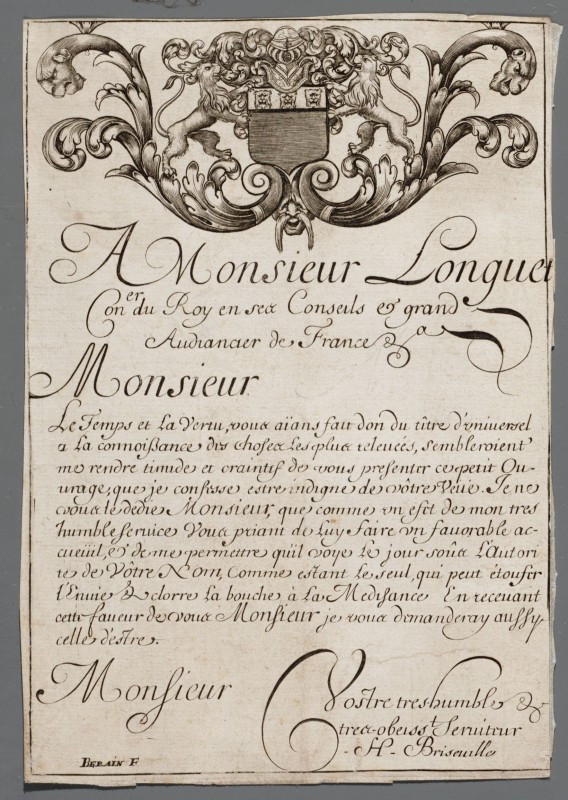 A Monsieur Longuet
Con.er du Roy en ses Conseils & grand
Audiancier de France &a
Monsieur
Le Temps et La Vertu, vous aïans fait don du tître d'vniversel
a La connoißance des choses Les plus releuées, sembleroient
me rendre timide et craintif de vous presenter ce petit Ou-
urage, que je confesse estre indigne de vôtre Veüe. Je ne
vous le dedie Monsieur, que comme vn efet de mon tres
humble service Vous priant de Luy faire vn favorable ac-
cueüil, & de me permettre qu'il voye Le jour soûs L'autori
te de Vôtre Nom, Comme estant Le seul, qui peut étoufer
l'Envie & clorre La bouche à La Medisance En receuant
cette faueur de vous Monsieur je vous demanderay aussy
celle d'estre.
Monsieur
Vostre tres humble &
tres-obeiss.t Seruiteur
-H- Briseville
BERAIN F